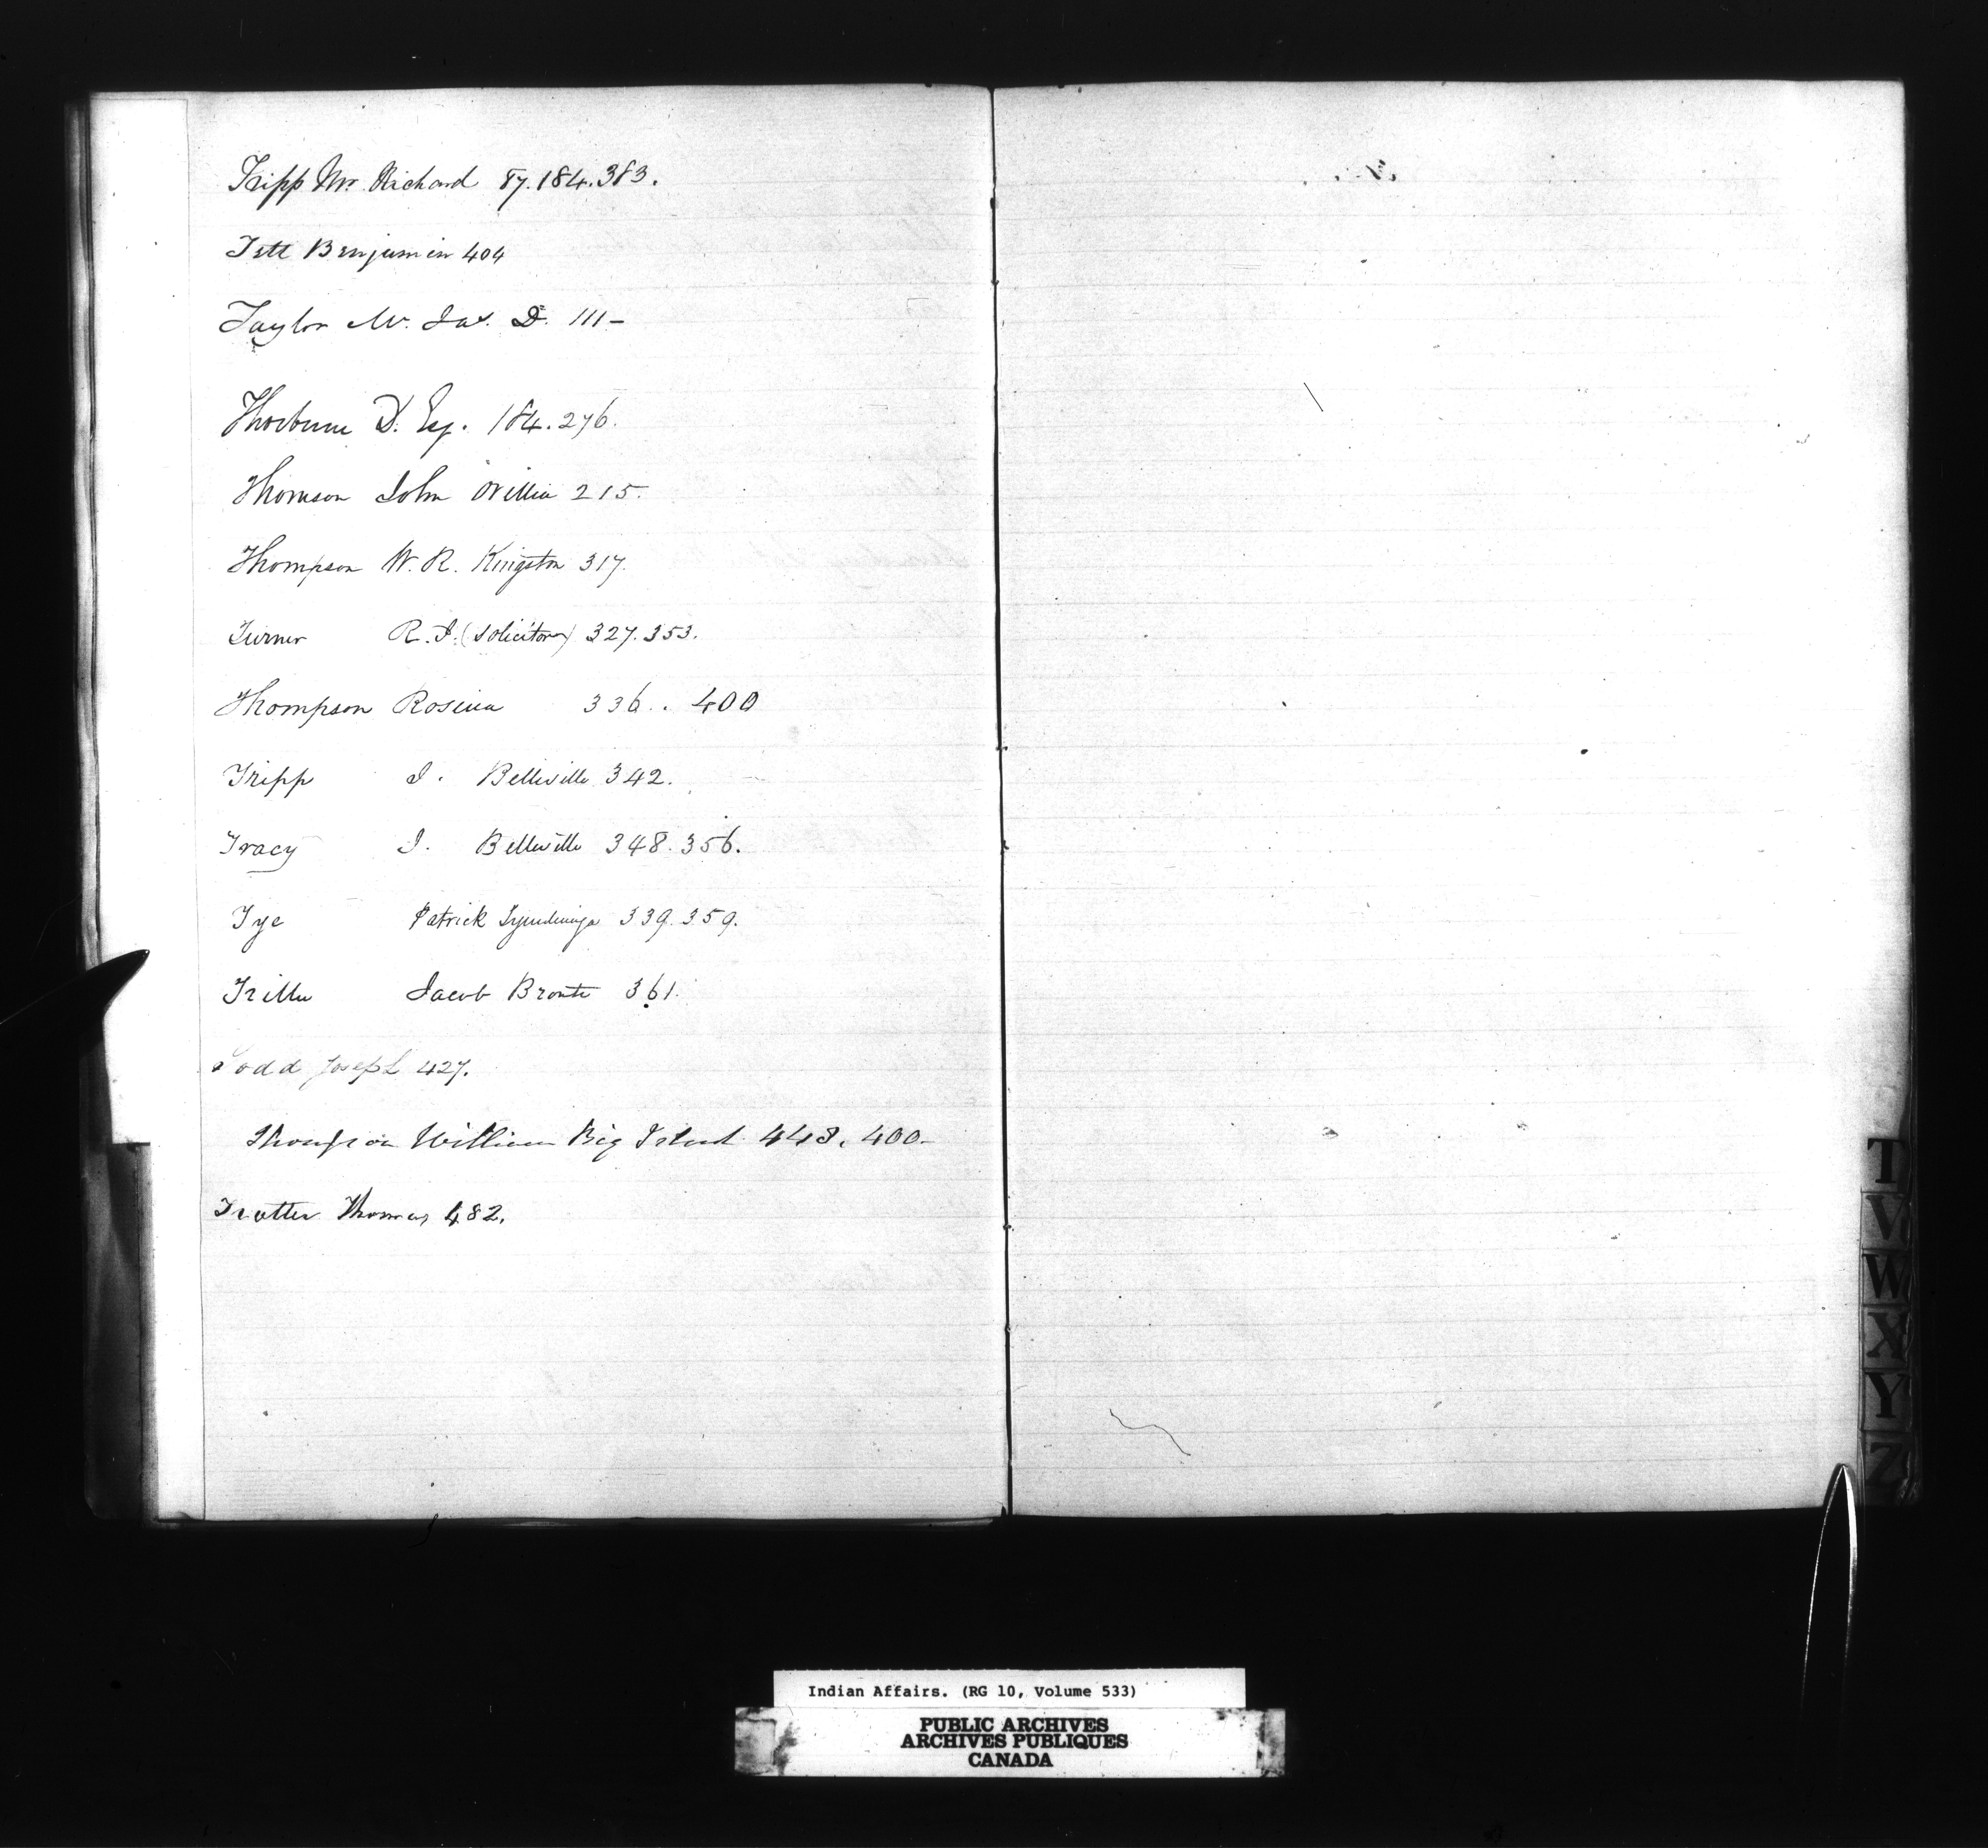 Tripp Mr. Richard 87. 184. 383.
Tett Benjamin 404
Taylor Mr. Jas. D. 111 -
Thorburne D. Esq. 184. 276.
Thomson John Orillia 215.
Thompson W. R. Kingston 317.
Turner R. J. (Solicitor) 327. 353.
Thompson Rosina 336. . 400
Tripp J. Belleville 342.
Tracy J. Belleville 348. 356.
Tye Patrick Tyendinaga 339. 359.
Triller Jacob Bronte 361.
Todd Joseph 427.
Thompson William Big Island 448. 400 -
Trotter Thomas 482.
T
V
W
X
Y
Z
Indian Affairs. (RG 10, Volume 533)
PUBLIC ARCHIVES
ARCHIVES PUBLIQUES
CANADA